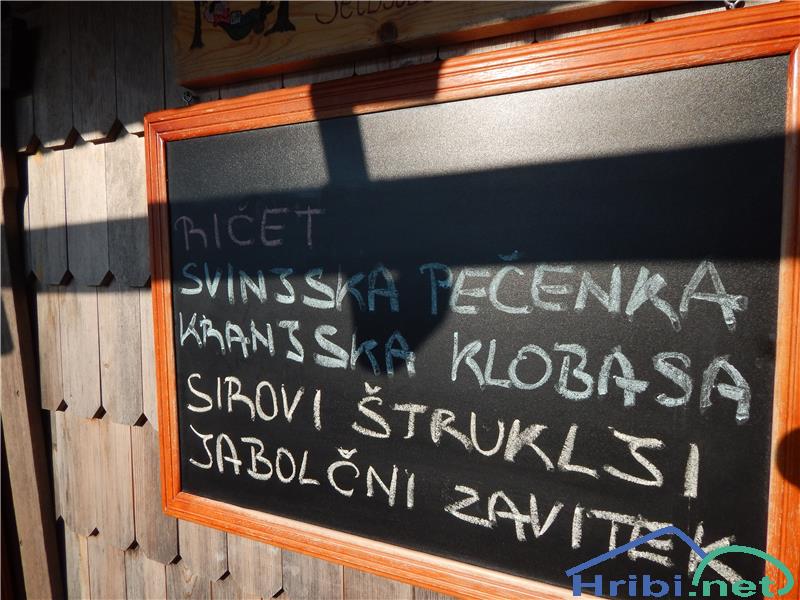 RIČET
SVINJSKA PEČENKA
KRANJSKA KLOBASA
SIROVI ŠTRUKLJI
JABOLČNI ZAVITEK
Hribi.net